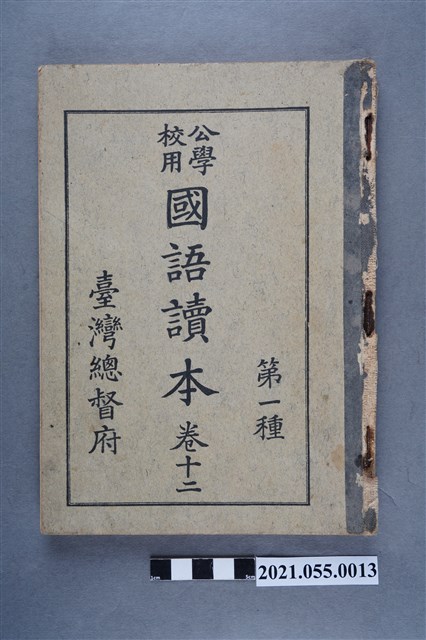 第一種
公學校用
國語讀本 卷十二
臺灣總督府
2021.055.0013
1cm
5cm